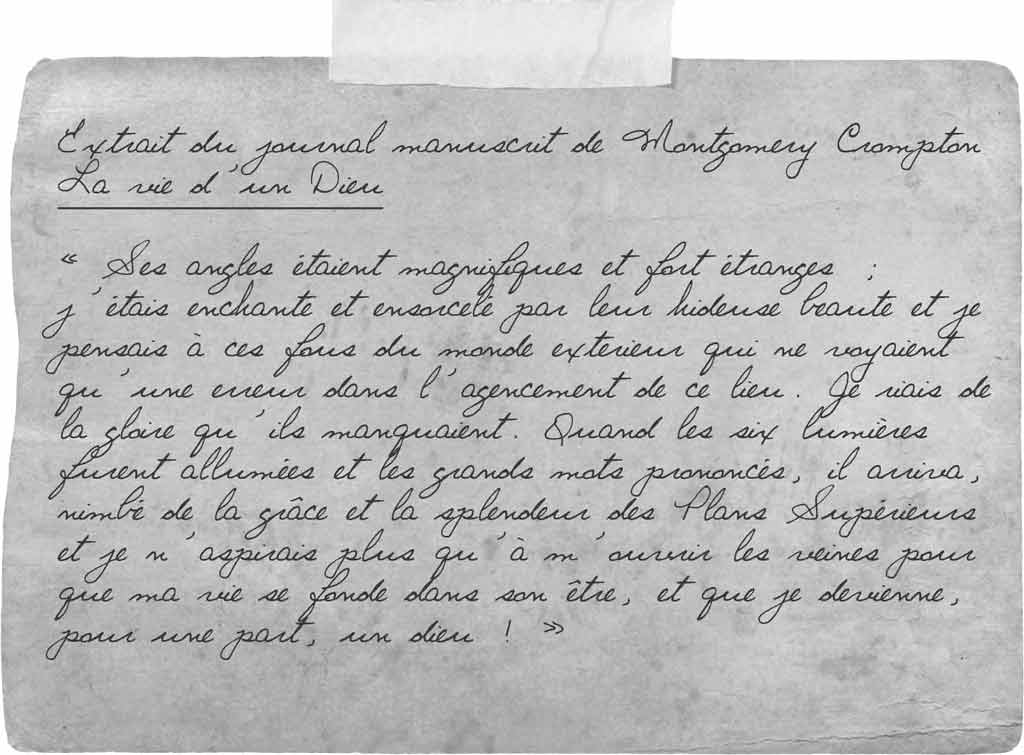 Extrait du journal manuscrit de Montgomery Crompton
La vie d'un Dieu
« Ses angles étaient magnifiques et fort étranges ;
j'étais enchante et ensorcelé par leur hideuse beaute et je
pensais à ces fous du monde exterieur qui ne voyaient
qu'une erreur dans l'agencement de ce lieu. Je riais de
la gloire qu'ils manquaient. Quand les six lumières
furent allumées et les grands mots prononcés, il arriva,
nimbé de la grâce et la splendeur des Plans Supérieurs
et je n'aspirais plus qu'à m'ouvrir les veines pour
que ma vie se fonde dans son être, et que je devienne,
pour une part, un dieu ! »